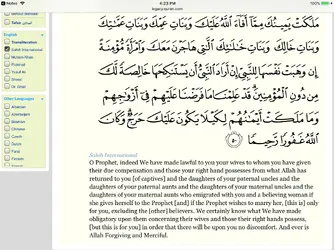 Notes
4:23 PM
100%
legacy.quran.com
English
Transliteration
Sahih International
Muhsin Khan
Pickthall
Yusuf Ali
Shakir
Dr. Ghali
Other Languages
Albanian
Azerbaijani
Bosnian
Chinese
Czech
Dutch
Farsi
Finnish
مَلَكَتْ يَمِينُكَ مِمَّآ أَفَآءَ ٱللَّهُ عَلَيْكَ وَبَنَاتِ عَمِّكَ وَبَنَاتِ عَمَّٰتِكَ
وَبَنَاتِ خَالِكَ وَبَنَاتِ خَٰلَٰتِكَ ٱلَّٰتِى هَاجَرْنَ مَعَكَ وَٱمْرَأَةً مُّؤْمِنَةً
إِن وَهَبَتْ نَفْسَهَا لِلنَّبِىِّ إِنْ أَرَادَ ٱلنَّبِىُّ أَن يَسْتَنكِحَهَا خَالِصَةً لَّكَ
مِن دُونِ ٱلْمُؤْمِنِينَ ۗ قَدْ عَلِمْنَا مَا فَرَضْنَا عَلَيْهِمْ فِىٓ أَزْوَٰجِهِمْ
وَمَا مَلَكَتْ أَيْمَٰنُهُمْ لِكَيْلَا يَكُونَ عَلَيْكَ حَرَجٌ ۗ وَكَانَ
ٱللَّهُ غَفُورًا رَّحِيمًا ٥٠
Sahih International
O Prophet, indeed We have made lawful to you your wives to whom you have given
their due compensation and those your right hand possesses from what Allah has
returned to you [of captives] and the daughters of your paternal uncles and the
daughters of your paternal aunts and the daughters of your maternal uncles and the
daughters of your maternal aunts who emigrated with you and a believing woman if
she gives herself to the Prophet [and] if the Prophet wishes to marry her, [this is] only
for you, excluding the [other] believers. We certainly know what We have made
obligatory upon them concerning their wives and those their right hands possess,
[but this is for you] in order that there will be upon you no discomfort. And ever is
Allah Forgiving and Merciful.